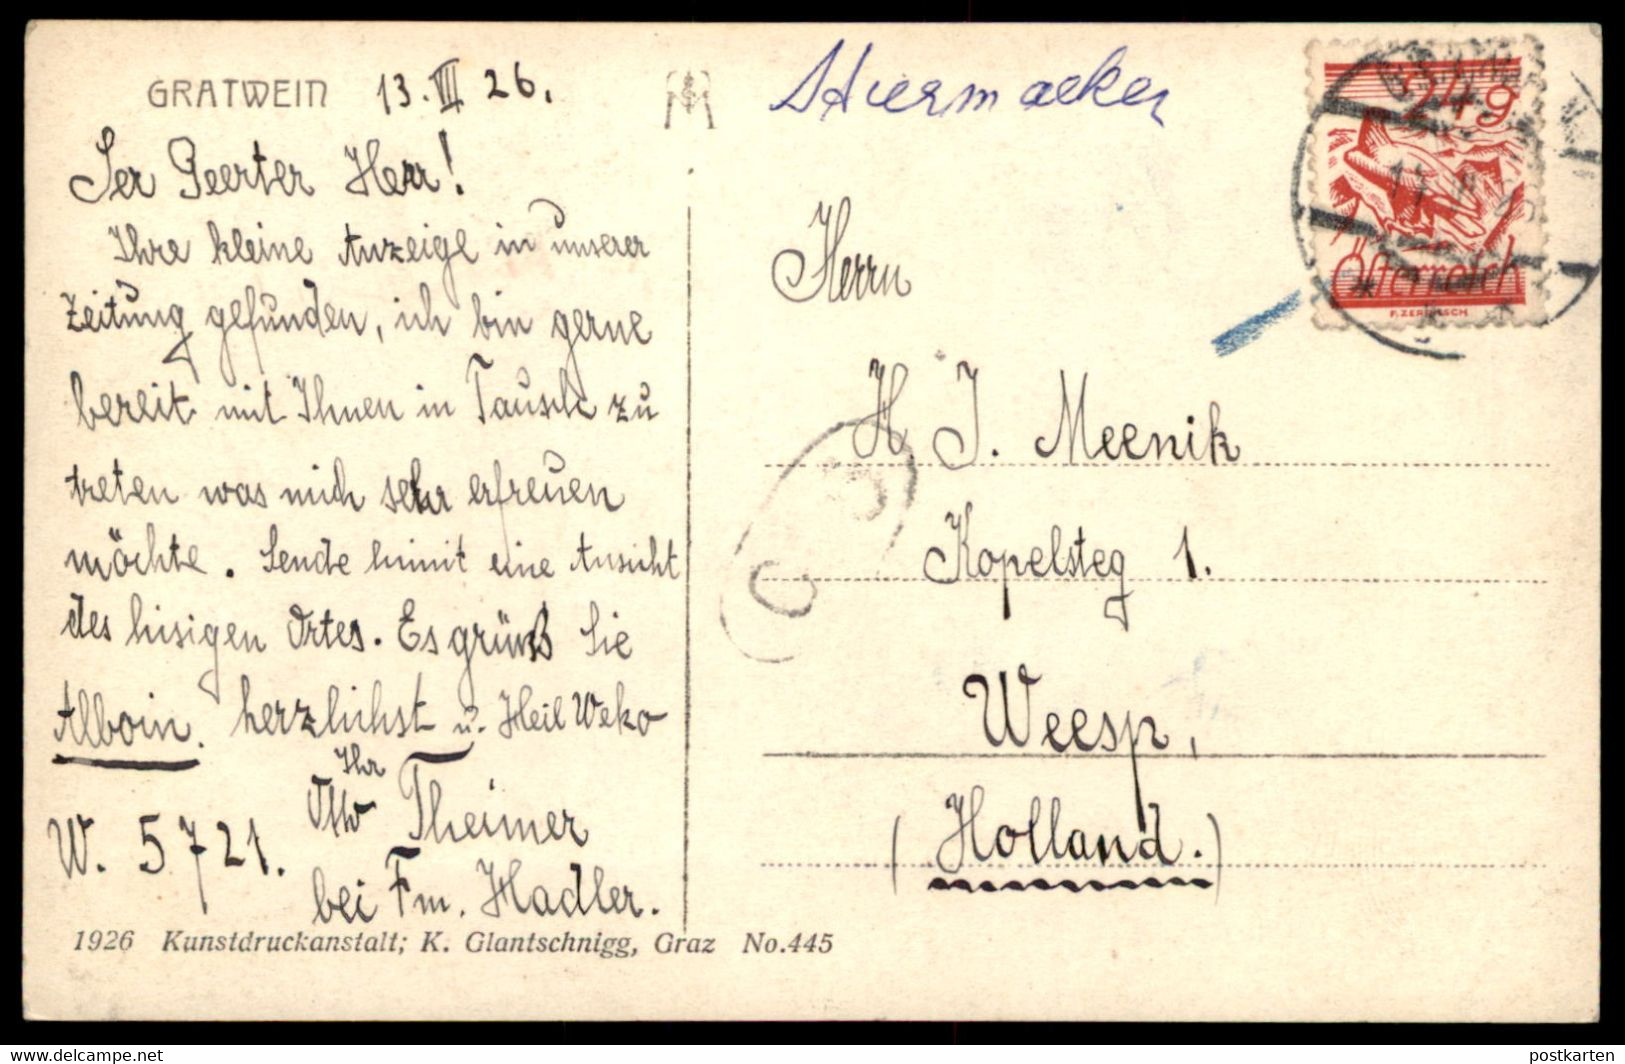 GRATWEIN 13. VII 26.
Ser Geerter Herr!
Ihre kleine Anzeige in unserer
Zeitung gefunden, ich bin gerne
bereit mit Ihnen in Tausch zu
treten was mich sehr erfreuen
möchte. Sende himit eine Ansicht
des hisigen Ortes. Es grüßt Sie
Alboin. herzlichst u. Heil Weko
Ihr
Otto Theimer
W. 5721.
bei Fm. Hadler.
1926 Kunstdruckanstalt; K. Glantschnigg, Graz No.445
Stiermarken
24g
Österreich
Herrn
H J. Meenik
Kopelsteg 1.
Weesp,
(Holland.)
postkarten